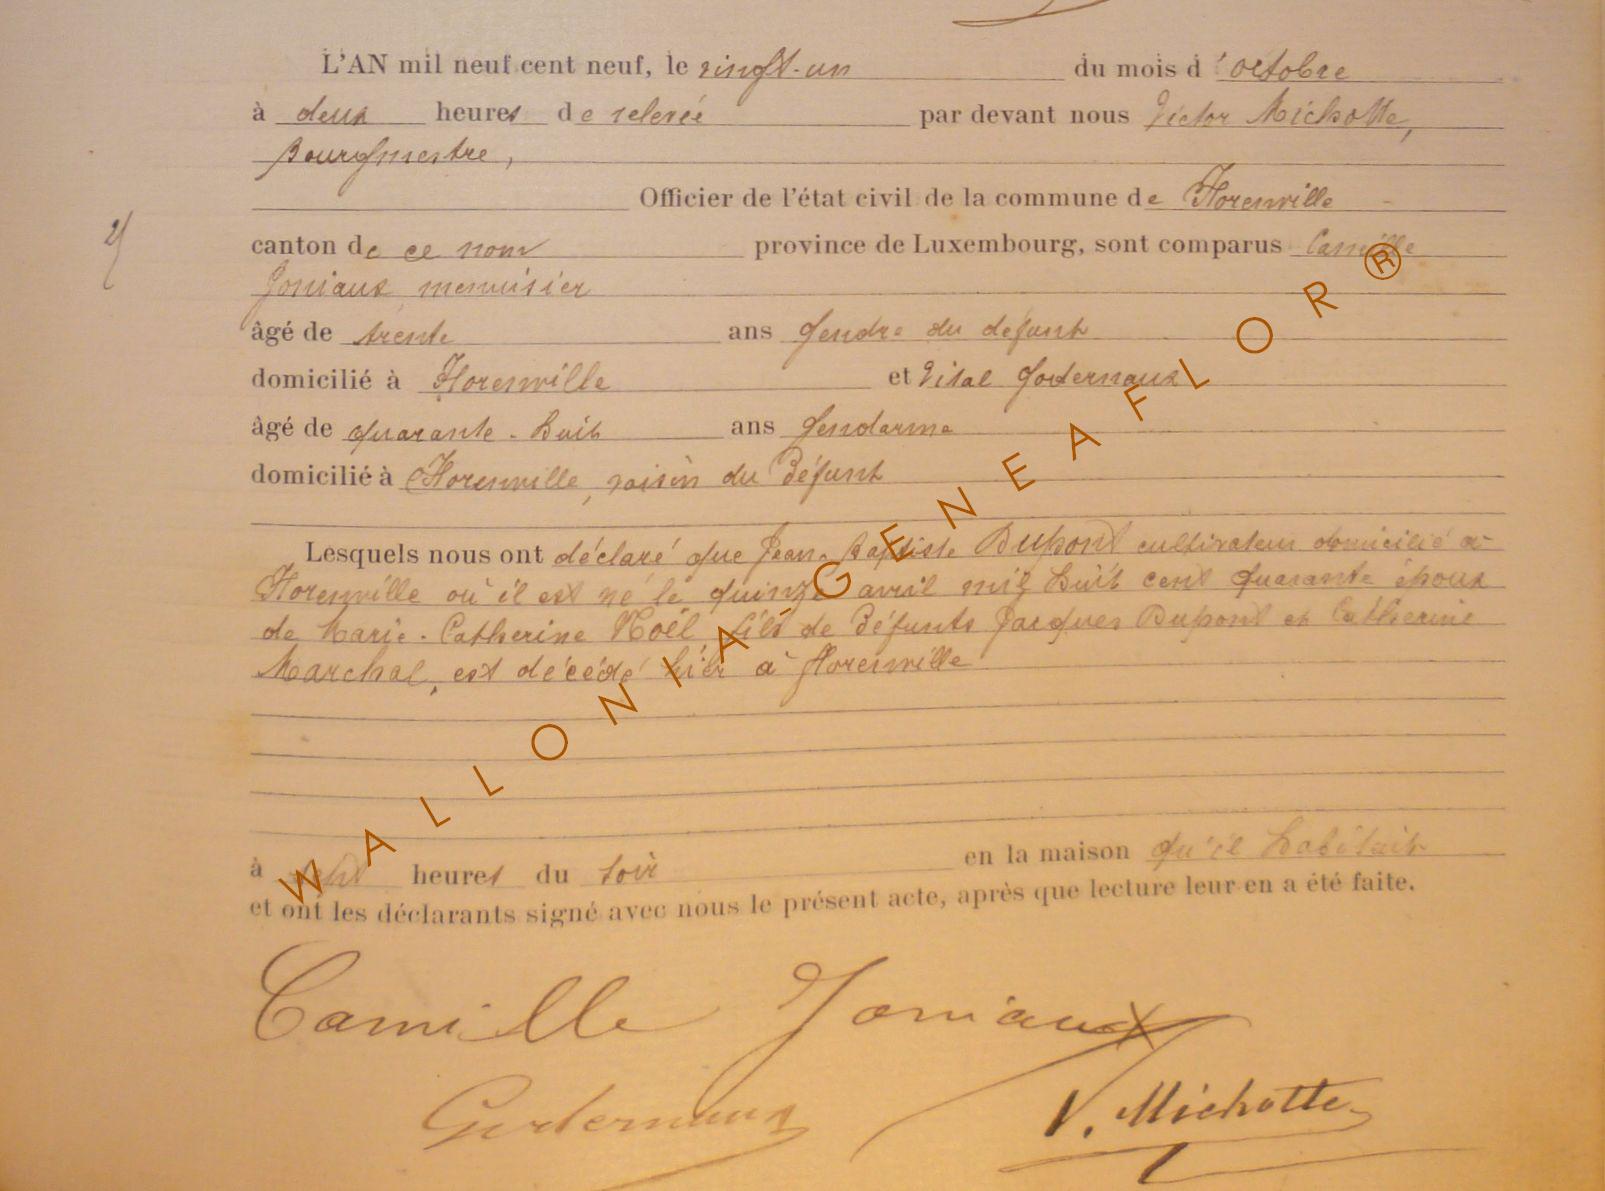 L'AN mil neuf cent neuf, le vingt-un du mois d'octobre
à deux heures de relevée par devant nous Victor Michotte,
Bourgmestre,
Officier de l'état civil de la commune de Florenville
2/
canton de ce nom province de Luxembourg, sont comparus Camille
Joniaux menuisier
âgé de trente ans gendre du défunt
domicilié à Florenville et Vital Godernaux
âgé de quarante-huit ans gendarme
domicilié à Florenville, voisin du Défunt
Lesquels nous ont déclaré que Jean-Baptiste Dupont cultivateur domicilié à
Florenville où il est né le quinze avril mil huit cent quarante époux
de Marie-Catherine Noël fils de Défunts Jacques Dupont et Catherine
Marchal, est décédé hier à Florenville
à heures du soir en la maison qu'il habitait
et ont les déclarants signé avec nous le présent acte, après que lecture leur en a été faite.
Camille Joniaux
Godernaux V. Michotte
WALLONIA GENEAFLOR ®